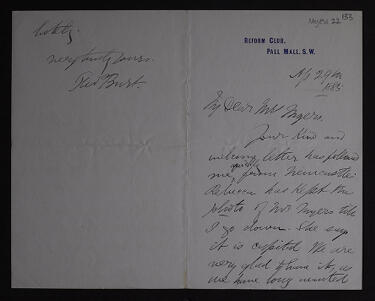 Myers 22 153
REFORM CLUB,
PALL MALL. S.W.
My Dear Mr Myers.
Your kind and
welcome letter has followed
me from Newcastle.
Rebecca has kept the
photo of Mrs Myers till
I go down. She says
it is capital. We are
very glad to have it, as
we have long wanted
very truly yours.
Thos Burt.